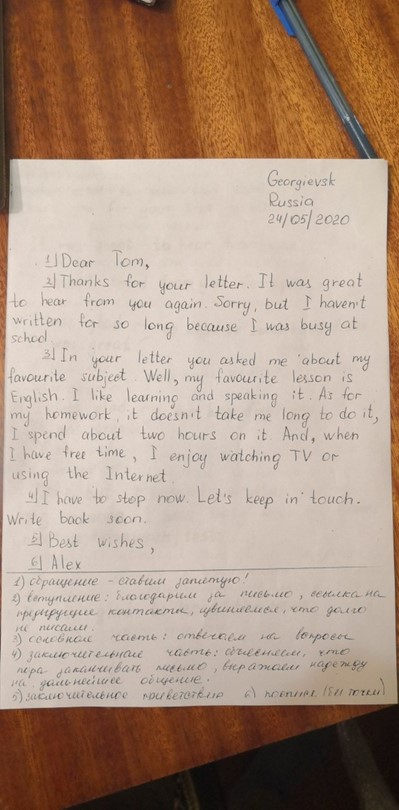 Georgievsk
Russia
24/05/2020
1) Dear Tom,
2) Thanks for your letter. It was great
to hear from you again. Sorry, but I haven't
written for so long because I was busy at
school.
3) In your letter you asked me about my
favourite subject. Well, my favourite lesson is
English. I like learning and speaking it. As for
my homework, it doesn't take me long to do it,
I spend about two hours on it. And, when
I have free time, I enjoy watching TV or
using the Internet.
4) I have to stop now. Let's keep in touch.
Write back soon.
5) Best wishes,
6) Alex
1) обращение - ставим запятую!
2) вступление: благодарим за письмо, ссылка на
предыдущие контакты, извиняемся, что долго
не писали.
3) основная часть: отвечаем на вопросы
4) заключительная часть: объясняем, что
пора заканчивать письмо, выражаем надежду
на дальнейшее общение.
5) заключительное приветствие 6) подпись (без точки)